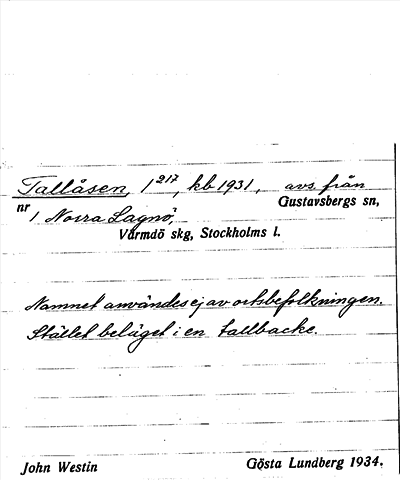 Tallåsen, 1 217, kb 1931, avs. från
Gustavsbergs sn,
nr 1 Norra Lagnö,
Värmdö skg, Stockholms l.
Namnet användes ej av ortsbefolkningen.
Stället beläget i en tallbacke.
John Westin
Gösta Lundberg 1934.